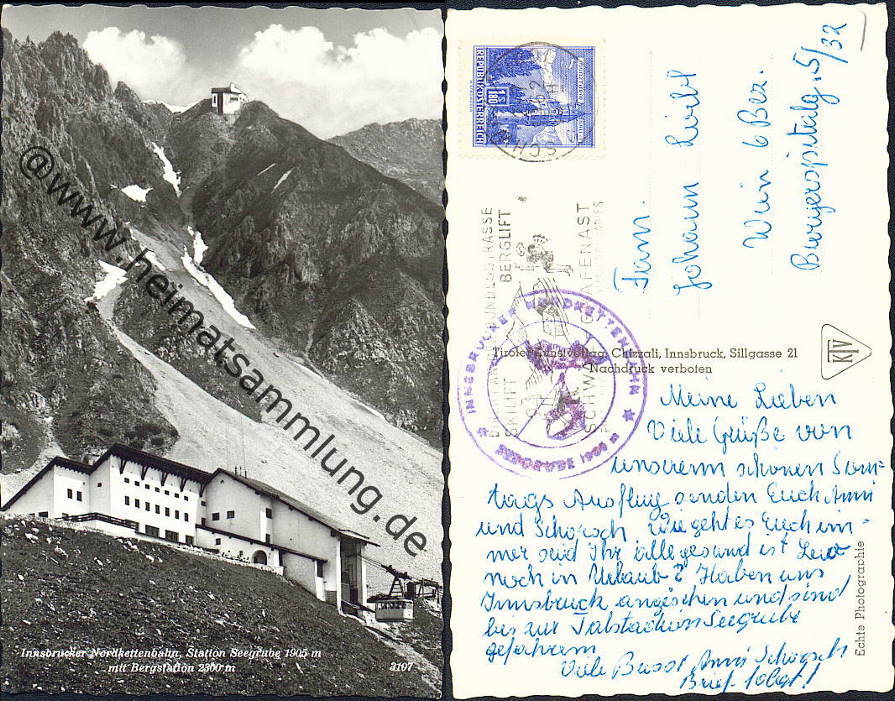 @www.heimatsammlung.de
Innsbrucker Nordkettenbahn, Station Seegrube 1905 m
mit Bergstation 2300 m
3107
REPUBLIK ÖSTERREICH
1.80
BERGLIFT
SKILIFT
INNSBRUCKER NORDKETTENBAHN
SEEGRUBE 1905 m
Fam.
Johann Liebl
Wien 6 Bez.
Bürgerspitalg. 5/32
Tiroler Kunstverlag Chizzali, Innsbruck, Sillgasse 21
Nachdruck verboten
KTV
Meine Lieben
Viele Grüße von
unserem schönen Sonn-
tags Ausflug senden Euch Anni
und Schorsch Wie geht es Euch im-
mer seid Ihr alle gesund ist
noch in Urlaub? Haben uns
Innsbruck angesehen und sind
bis zur Talstation Seegrube
gefahren
Viele Bussi Anni Schorsch
Brief folgt!
Echte Photographie